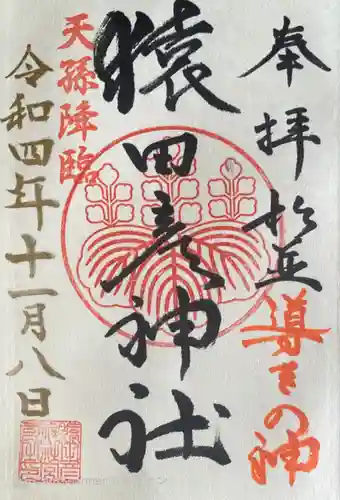 奉拝 松並
導きの神
猿田彦神社
天孫降臨
令和四年十一月八日